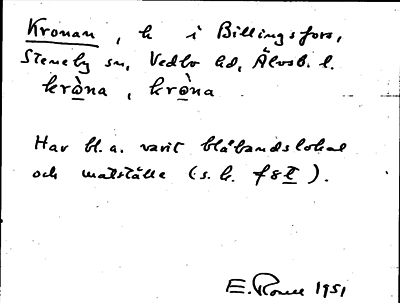 Kronan, h i Billingsfors,
Steneby sn, Vedbo hd, Älvsb. l.
krὼna, krὼna
Har bl. a. varit blåbandslokal
och matställe (s. k.
E. 1951